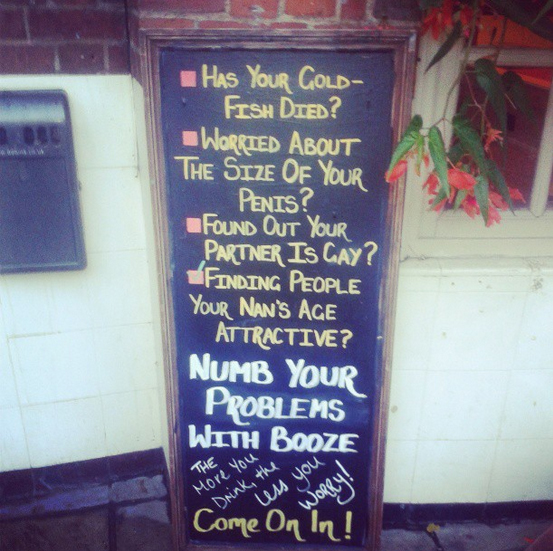 HAS YOUR GOLD-
FISH DIED?
WORRIED ABOUT
THE SIZE OF YOUR
PENIS?
FOUND OUT YOUR
PARTNER IS GAY?
FINDING PEOPLE
YOUR NAN'S AGE
ATTRACTIVE?
NUMB YOUR
PROBLEMS
WITH BOOZE
THE
MORE YOU
DRINK, THE
LESS YOU
WORRY!
COME ON IN!